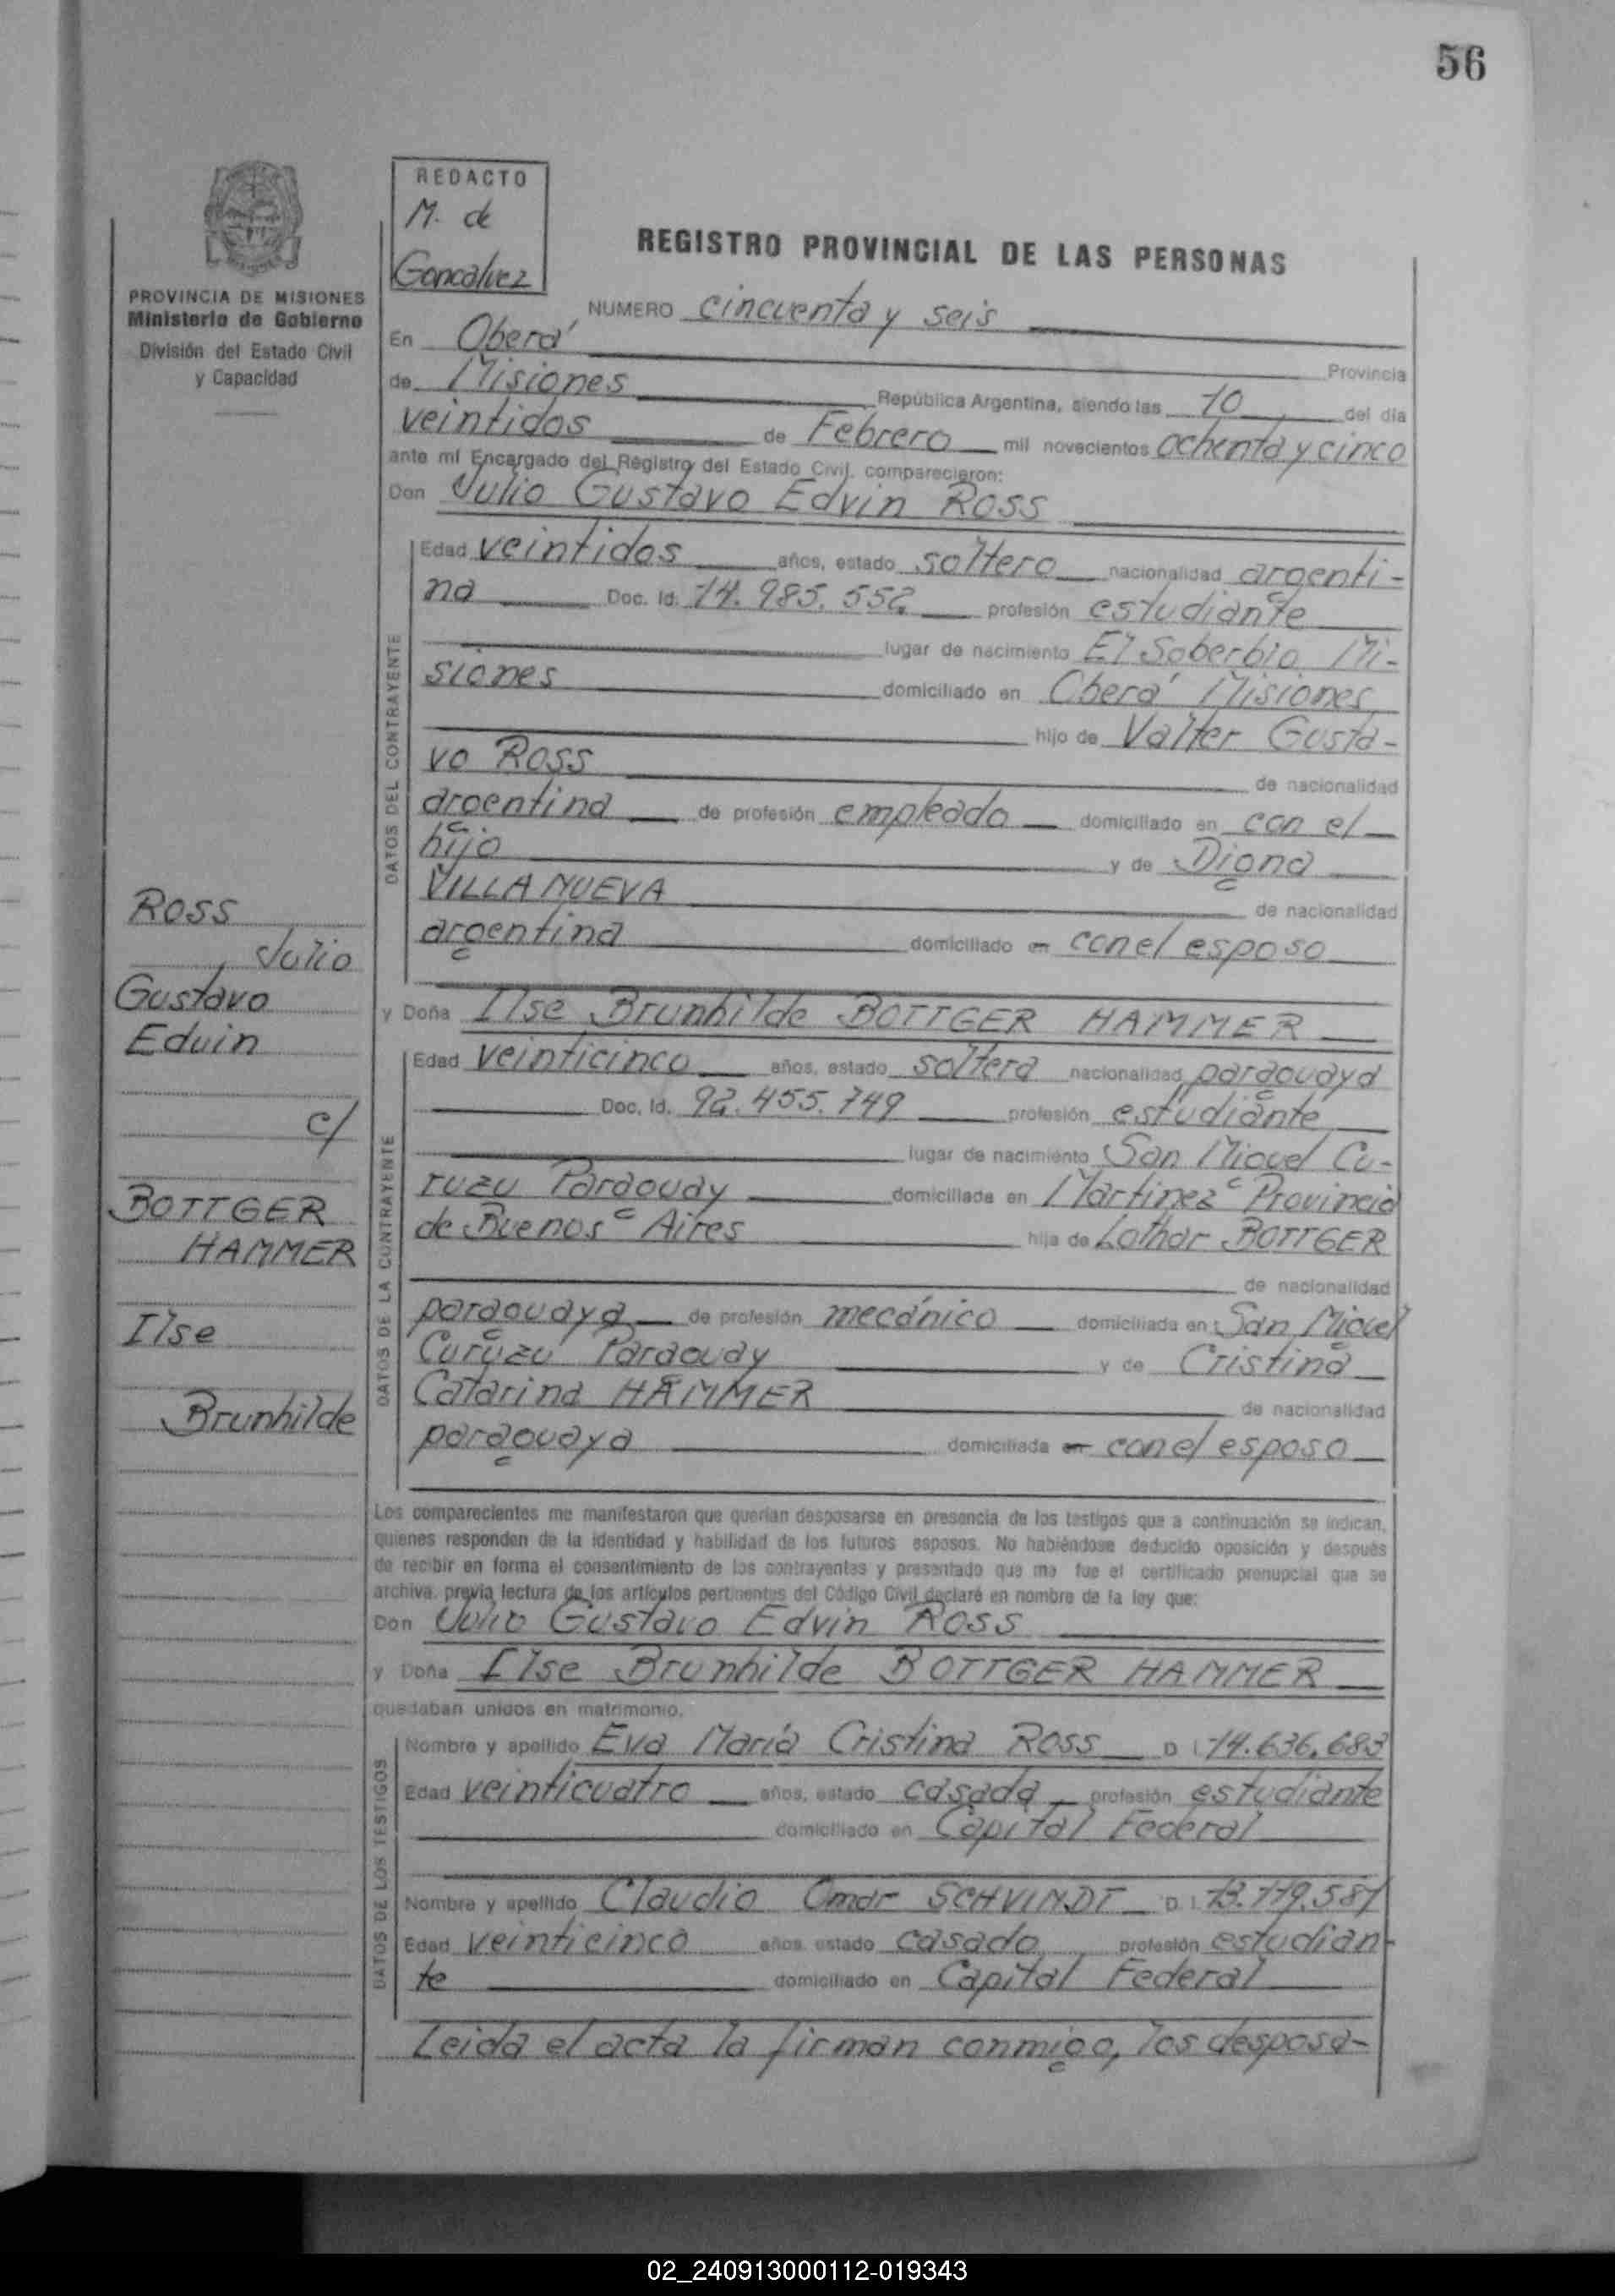 56
REDACTO
M. de
Goncalvez
PROVINCIA DE MISIONES
Ministerio de Gobierno
División del Estado Civil
y Capacidad
REGISTRO PROVINCIAL DE LAS PERSONAS
NUMERO cincuenta y seis
En Oberá Provincia
de Misiones República Argentina, siendo las 10 del dia
veintidos de Febrero mil novecientos ochenta y cinco
ante mí Encargado del Registro del Estado Civil, comparecieron:
Don Julio Gustavo Edvin ROSS
DATOS DEL CONTRAYENTE
Edad veintidos años, estado soltero nacionalidad argenti-
na Doc. Id. 14.985.552 profesión estudiante
lugar de nacimiento El Soberbio Mi-
siones domiciliado en Oberá Misiones
hijo de Valter Gusta-
vo ROSS de nacionalidad
argentina de profesión empleado domiciliado en con el
hijo y de Diana
VILLANUEVA de nacionalidad
argentina domiciliado en con el esposo
y Doña Ilse Brunhilde BOTTGER HAMMER
DATOS DE LA CONTRAYENTE
Edad veinticinco años, estado soltera nacionalidad paraguaya
Doc. Id. 92.455.749 profesión estudiante
lugar de nacimiento San Miguel Cu-
ruzu Paraguay domiciliada en Martinez Provincia
de Buenos Aires hija de Lothar BOTTGER
de nacionalidad
paraguaya de profesión mecánico domiciliada en San Miguel
Curuzú Paraguay y de Cristina
Catarina HAMMER de nacionalidad
paraguaya domiciliada en con el esposo
Ross
Julio
Gustavo
Edvin
c/
BOTTGER
HAMMER
Ilse
Brunhilde
Los comparecientes me manifestaron que querian desposarse en presencia de los testigos que a continuación se indican,
quienes responden de la identidad y habilidad de los futuros esposos. No habiéndose deducido oposición y después
de recibir en forma el consentimiento de los contrayentes y presentado que me fue el certificado prenupcial que se
archiva, previa lectura de los artículos pertinentes del Código Civil declaré en nombre de la ley que:
Don Julio Gustavo Edvin ROSS
y Doña Ilse Brunhilde BOTTGER HAMMER
quedaban unidos en matrimonio.
DATOS DE LOS TESTIGOS
Nombre y apellido Eva María Cristina ROSS D I. 14.636.683
Edad veinticuatro años, estado casada profesión estudiante
domiciliado en Capital Federal
Nombre y apellido Claudio Omar SCHVINDT D. I. 13.119.581
Edad veinticinco años, estado casado profesión estudian-
te domiciliado en Capital Federal
Leida el acta la firman conmigo, los desposa-
02_240913000112-019343